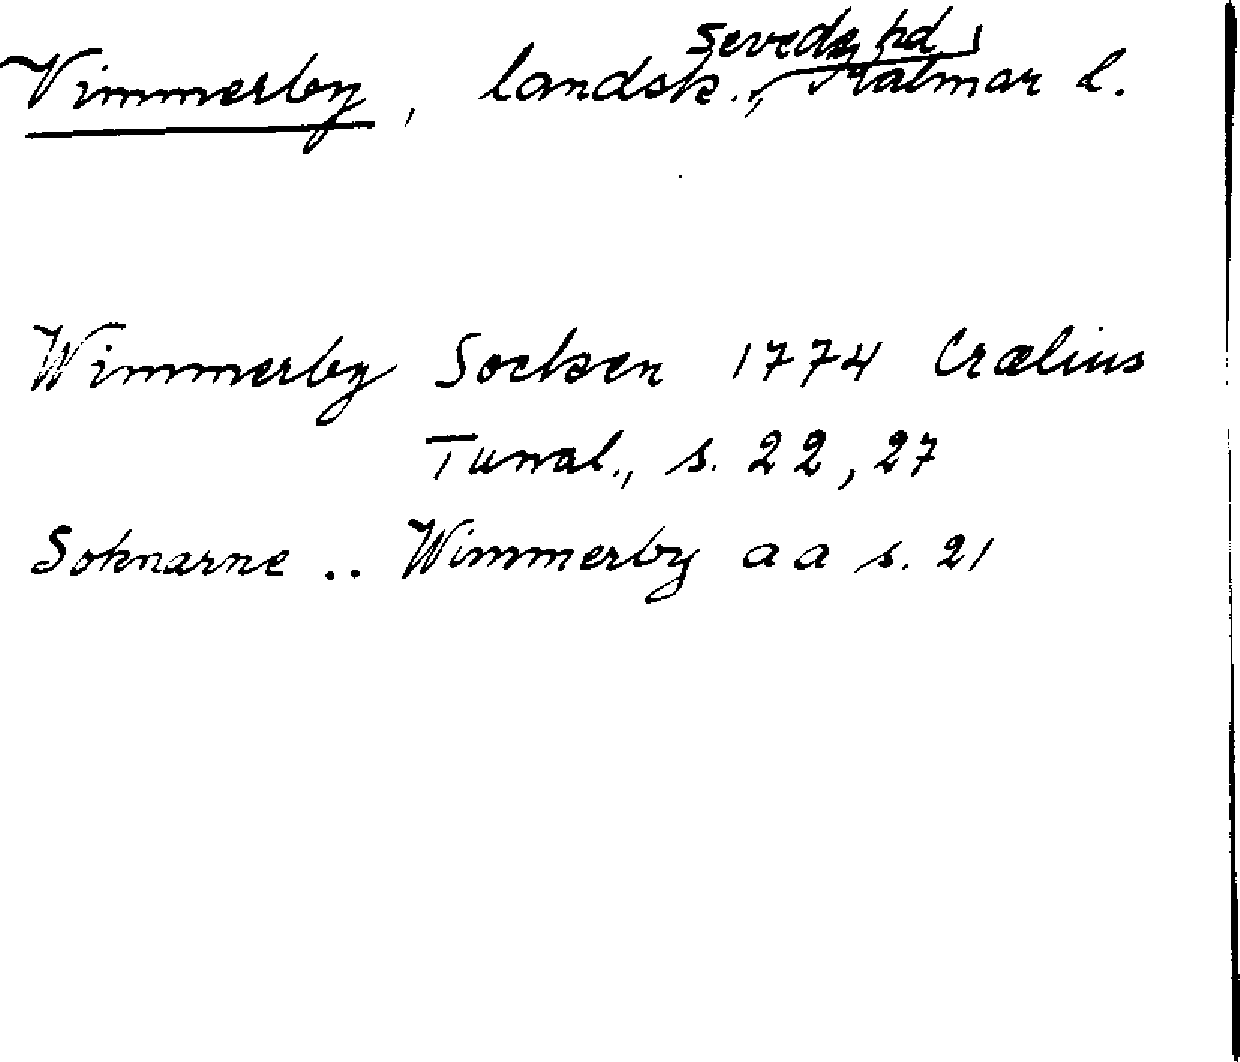 Vimmerby, landsk., Sevede hd, Kalmar l.
Wimmerby Socken 1774 Crælius
Tunal., s. 22, 27
Soknarne .. Wimmerby a a s. 21